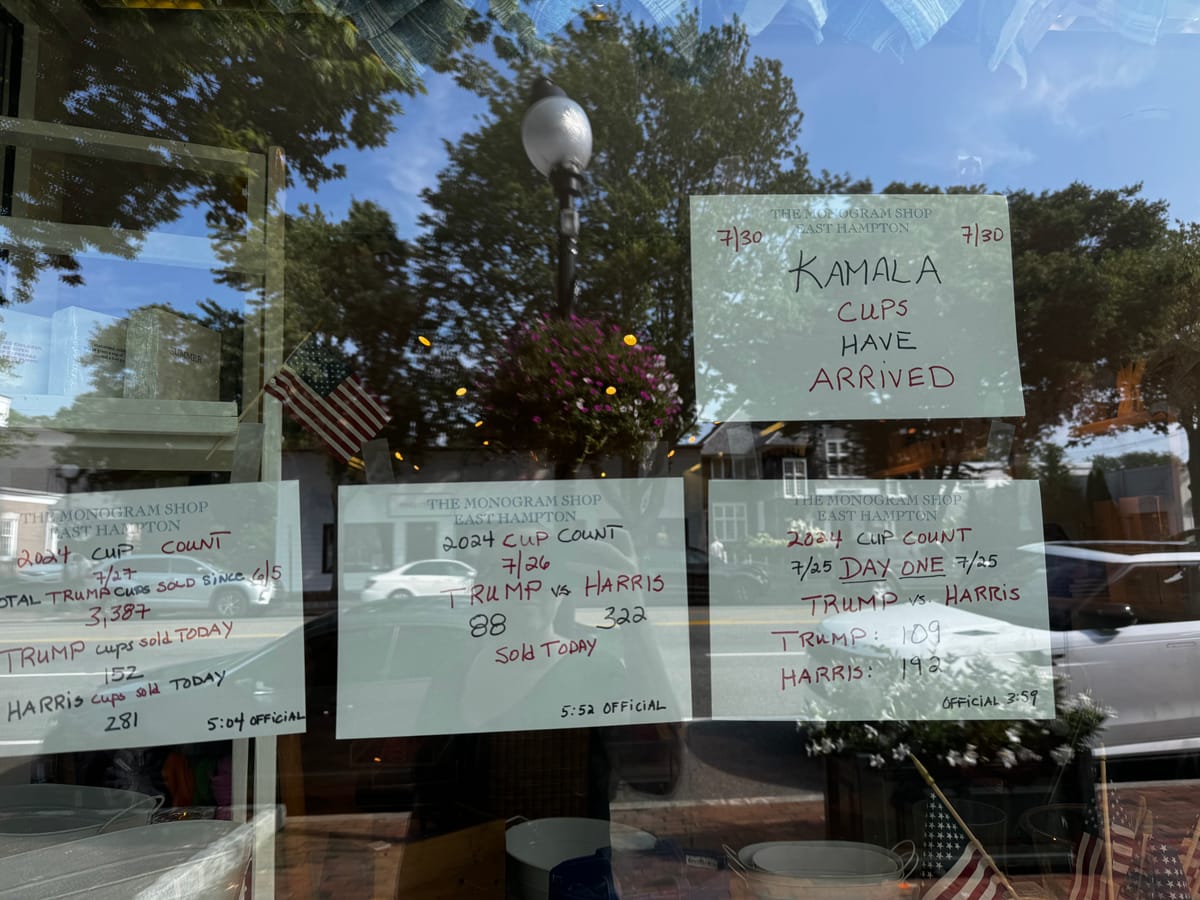 THE MONOGRAM SHOP
EAST HAMPTON
7/30 7/30
KAMALA
CUPS
HAVE
ARRIVED
THE MONOGRAM SHOP
EAST HAMPTON
2024 CUP COUNT
7/27
OTAL TRUMP CUPS SOLD SINCE 6/5
3,387
TRUMP CUPS sold TODAY
152
HARRIS cups sold TODAY
281
5:04 OFFICIAL
THE MONOGRAM SHOP
EAST HAMPTON
2024 CUP COUNT
7/26
TRUMP vs HARRIS
88 322
Sold TODAY
5:52 OFFICIAL
THE MONOGRAM SHOP
EAST HAMPTON
2024 CUP COUNT
7/25 DAY ONE 7/25
TRUMP vs. HARRIS
TRUMP: 109
HARRIS: 192
OFFICIAL 3:59
SUMMER